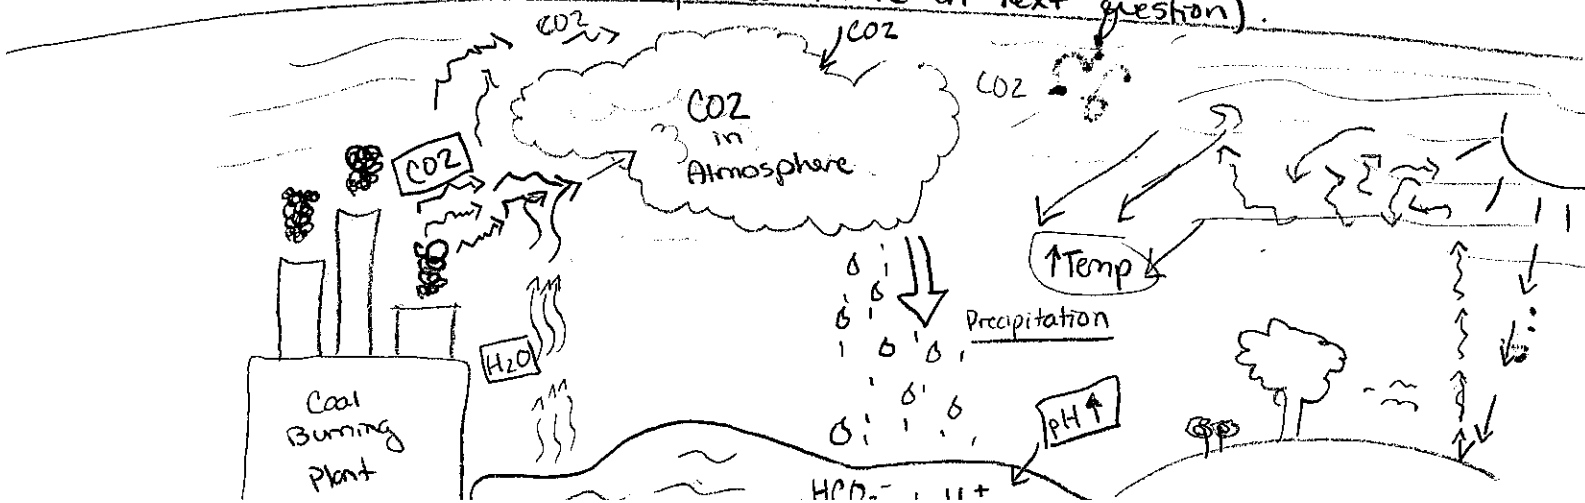 in Text question).
CO2
CO2
CO2
CO2
in
Atmosphere
CO2
↑Temp
Precipitation
H2O
pH↑
Coal
Burning
Plant
HCO3- + H+